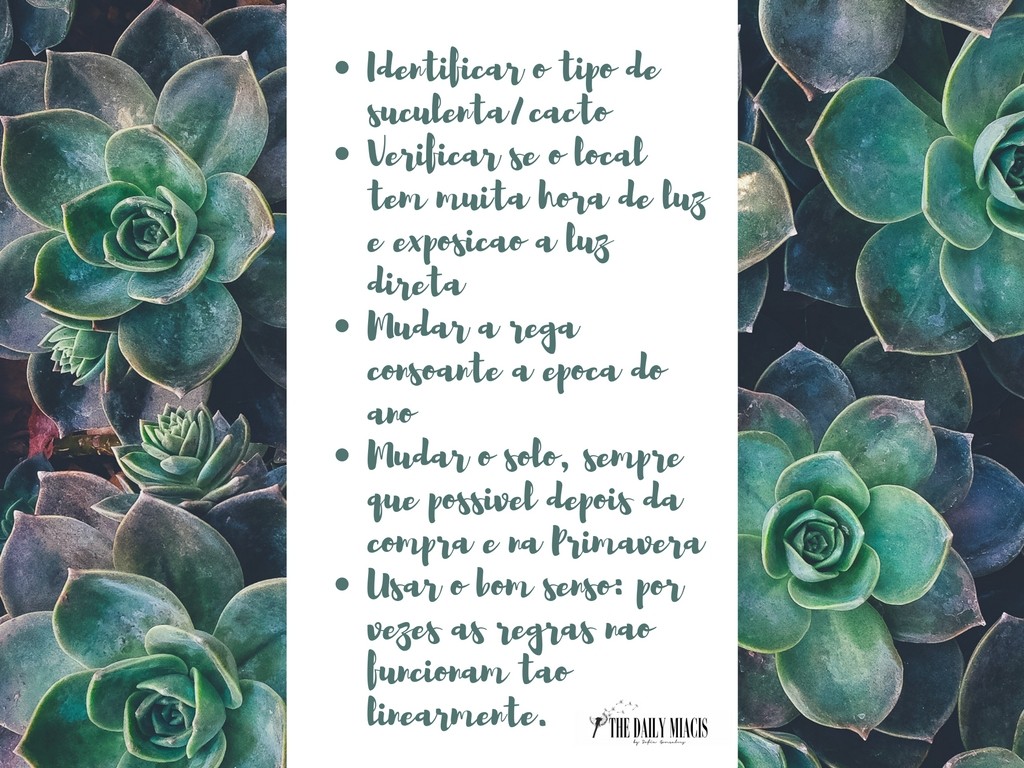 • Identificar o tipo de
suculenta/cacto
• Verificar se o local
tem muita hora de luz
e exposicao a luz
direta
• Mudar a rega
consoante a epoca do
ano
• Mudar o solo, sempre
que possivel depois da
compra e na Primavera
• Usar o bom senso: por
vezes as regras nao
funcionam tao
linearmente.
THE DAILY MIACIS
by Sofia